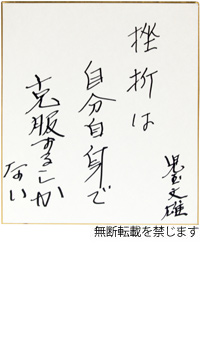 挫折は
自分自身で
克服するしか
ない
児玉文雄
無断転載を禁じます